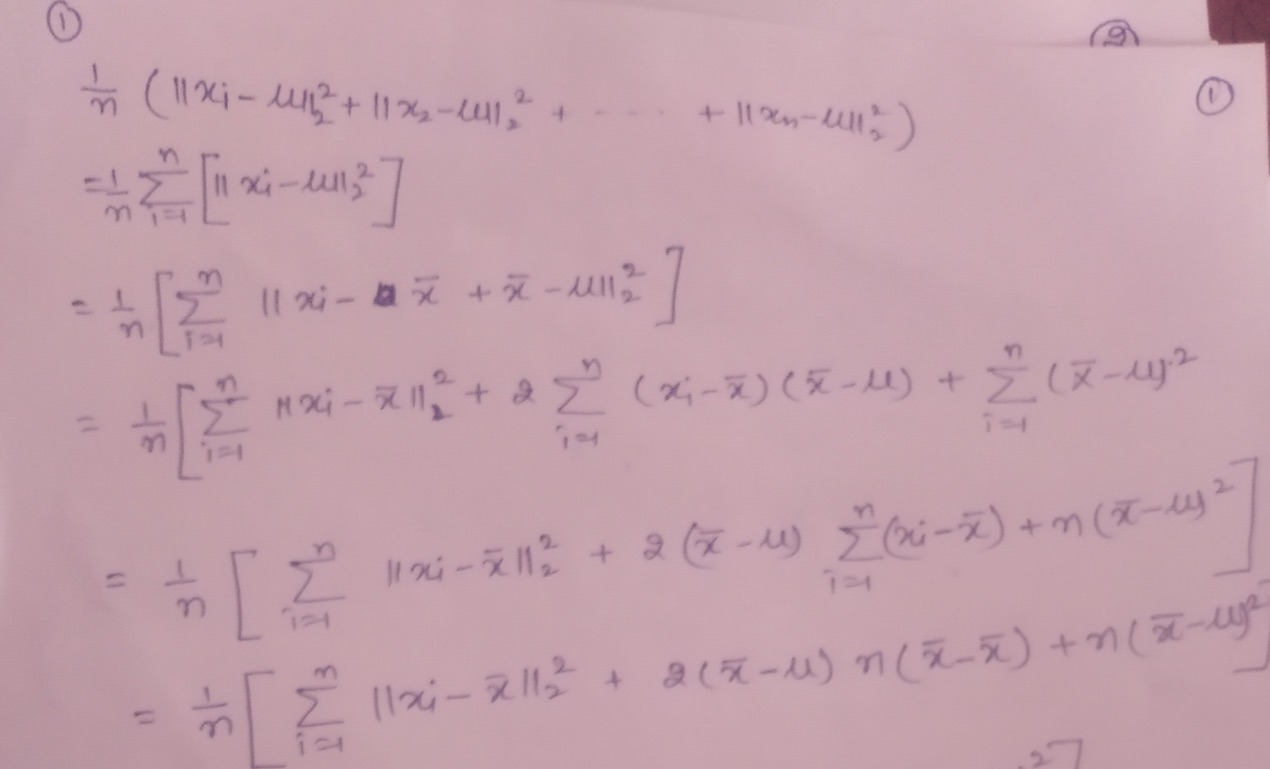 ① ② ①
1/n (||xi − μ||₂² + ||x₂ − μ||₂² + - - - - + ||xn − μ||₂²)
= 1/n Σ_{i=1}^{n} [||xi − μ||₂²]
= 1/n [Σ_{i=1}^{n} ||xi − x̄ + x̄ − μ||₂²]
= 1/n [Σ_{i=1}^{n} ||xi − x̄||₂² + 2 Σ_{i=1}^{n} (xi − x̄)(x̄ − μ) + Σ_{i=1}^{n} (x̄ − μ)²
= 1/n [Σ_{i=1}^{n} ||xi − x̄||₂² + 2(x̄ − μ) Σ_{i=1}^{n} (xi − x̄) + n(x̄ − μ)²]
= 1/n [Σ_{i=1}^{n} ||xi − x̄||₂² + 2(x̄ − μ) n(x̄ − x̄) + n(x̄ − μ)²]